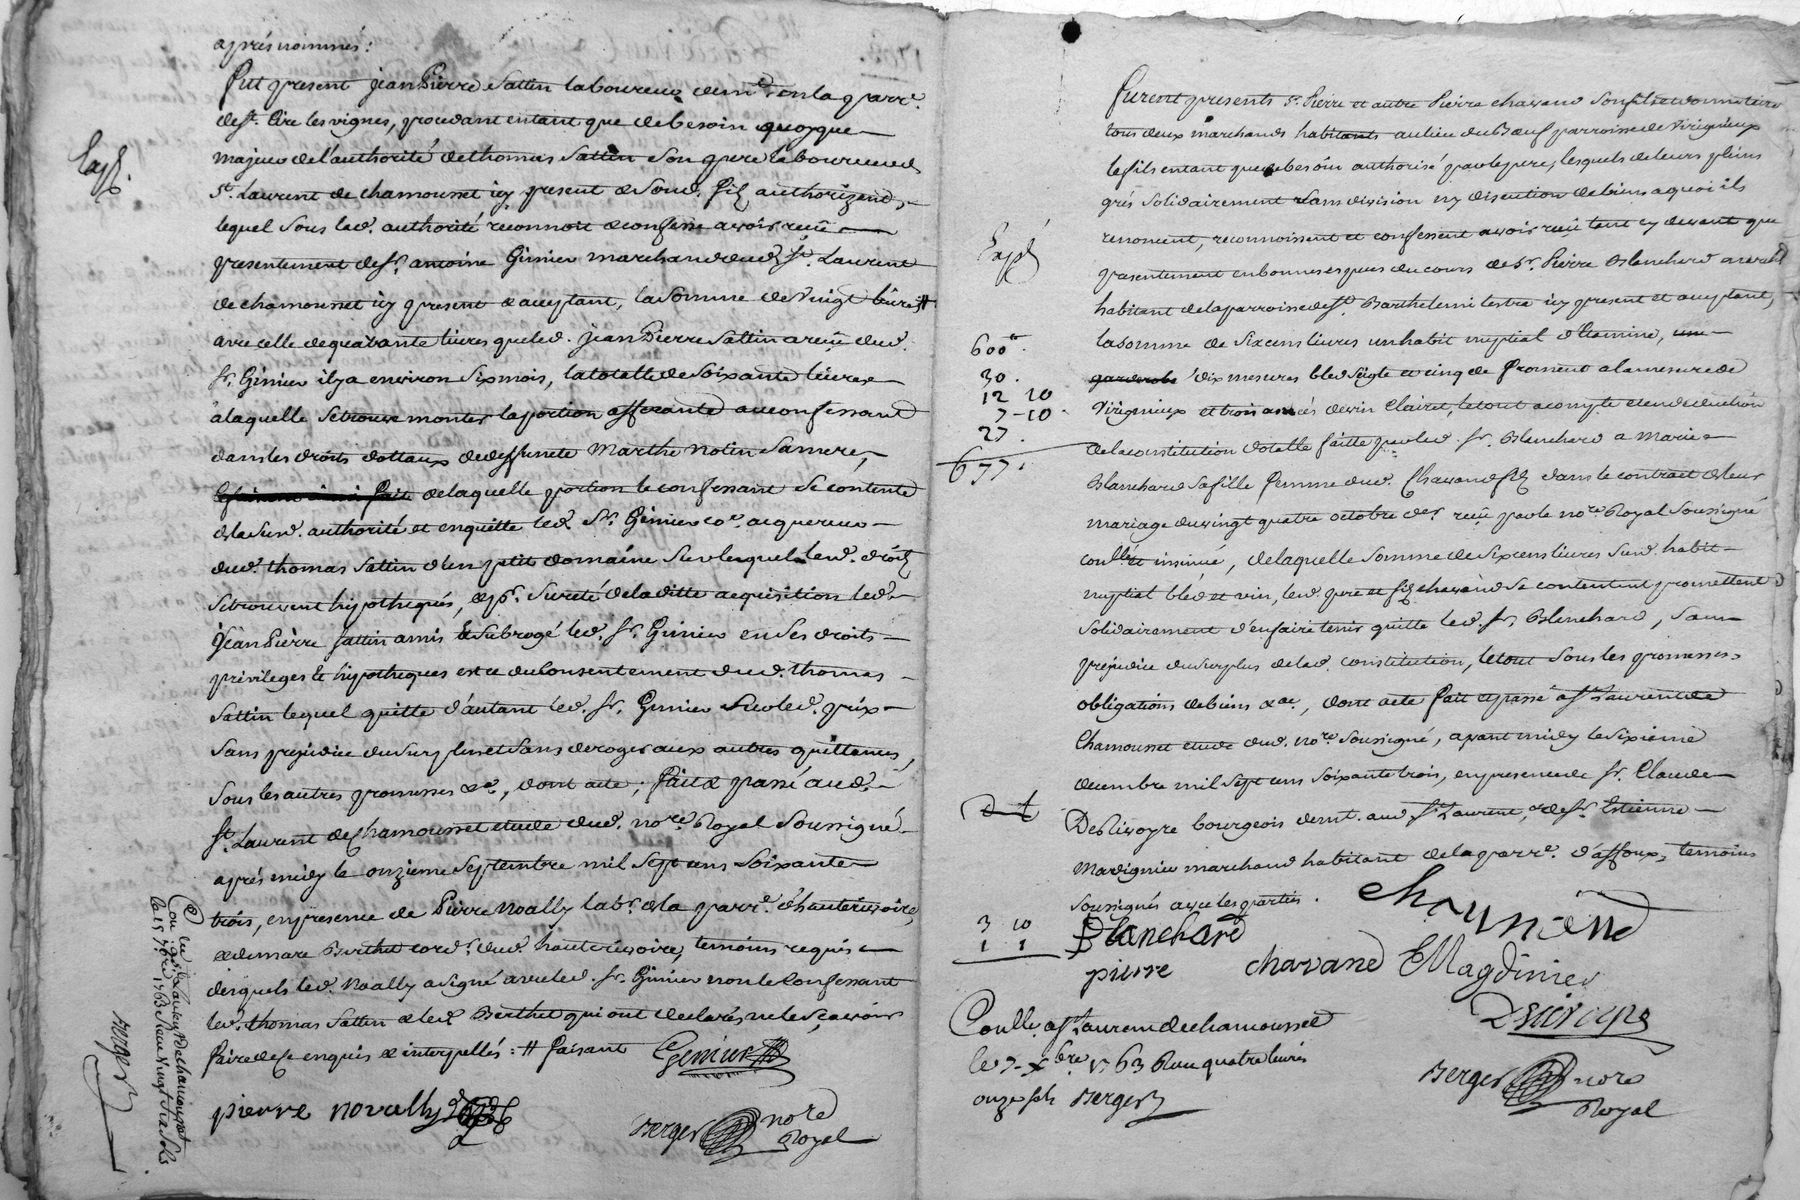 aprés nommés:
Fut present jean Pierre Sattin laboureur demt. en la parre.
de st. Cire les vignes, procedant entant que de besoin quoyque
majeur de l'authorité de thomas Sattin son pere laboureur de
St. Laurent de chamousset icy present & son d. fils authorizend,
lequel sous led. authorité reconnoit & confesse avoir reçû
presentement de sr. antoine Ginier marchand dud. st. Laurent
de chamousset icy present & aceptant, la somme de vingt livres #
avec celle de quarante livres que led. jean Pierre Sattin a reçû dud.
sr. Ginier il y a environ six mois, la totalle de soixante livres
a laquelle se trouve monter la portion afferante au confessant
dans les droits dottaux de deffuncte Marthe Notin sa mere,
de laquelle portion le confessant se contente
de la susd. authorité et en quitte led. sr. Ginier co.e acquereur
dud. thomas Sattin d'un petit domaine sur lequel lesd. droits
se trouvent hypothequés, & pr. sureté de la ditte acquisition led.
jean Pierre Sattin a mis & subrogé led. sr. Ginier en ses droits
privileges & hypotheques et ce du consentement dud. thomas
Sattin lequel quitte d'autant led. sr. Ginier sur led. prix
sans prejudice du surplus et sans deroger aux autres quittances,
sous les autres promesses &a., dont acte; fait & passé aud.
st. Laurent de Chamousset etude dud. nore. Royal soussigné
aprés midy le onzieme septembre mil sept cens soixante
trois, en presence de Pierre Noally labr. de la parre. d'hauterivoire,
& demare Berthet cord. dud. hauterivoire, temoins requis
desquels led. Noally a signé avec led. sr. Ginier non le confessant
led. thomas Sattin & led. Berthet qui ont declarés ne le sçavoir
faire de ce enquis & interpellés: # faisant Genier
pierre novally
Berger nore
Royal
Expé.
le 15 7bre 1763
Berger
furent presents sr. Pierre et autre Pierre chavand son fils
tous deux marchands habitants au lieu du Bœuf parroisse de Virignieux
le fils entant que de besoin authorisé par le pere, lesquels de leurs pleins
grés solidairement sans division ny discution de biens a quoi ils
renoncent, reconnoissent et confessent avoir reçû tant cy devant que
presentement en bonnes especes du cours de sr. Pierre Blanchard march.
habitant de la parroisse de st. Barthelemi lestra icy present et aceptant,
la somme de six cens livres un habit nuptial d'Etamine, un
garderobe dix mesures bled seigle et cinq de froment a la mesure de
Virignieux et trois anées de vin clairet, le tout a compte et en deduction
de la constitution dotalle faitte par led. sr. Blanchard a Marie
Blanchard sa fille femme dud. Chavand fils dans le contract de leur
mariage du vingt quatre octobre der. reçû par le nore. Royal soussigné
coullé et insinué, de laquelle somme de six cens livres susd. habit
nuptial bléd et vin, lesd. pere et fils chavand se contentent promettent
solidairement d'en faire tenir quitte led. sr. Blanchard, sans
prejudice du surplus de lad. constitution, le tout sous les promesses
obligations de biens &ae., dont acte fait et passé a st. Laurent de
Chamousset etude dud. nore. soussigné, avant midy le sixieme
decembre mil sept cens soixante trois, en presence de sr. Claude
Desrivoyre bourgeois demt. aud. st. Laurent, & de sr. Estienne
Mardinier marchand habitant de la parre. d'affoux, temoins
soussignés avec les parties.
Blanchard
pierre chavand Magdinier
Desrivoyre
Coullé a st Laurent de chamousset
le 7 xbre 1763 Reçu quatre livres
onze sols Berger
Berger nore
Royal
Expé
600#
30.
12 10
7-10
27.
677.
3 10
1 1